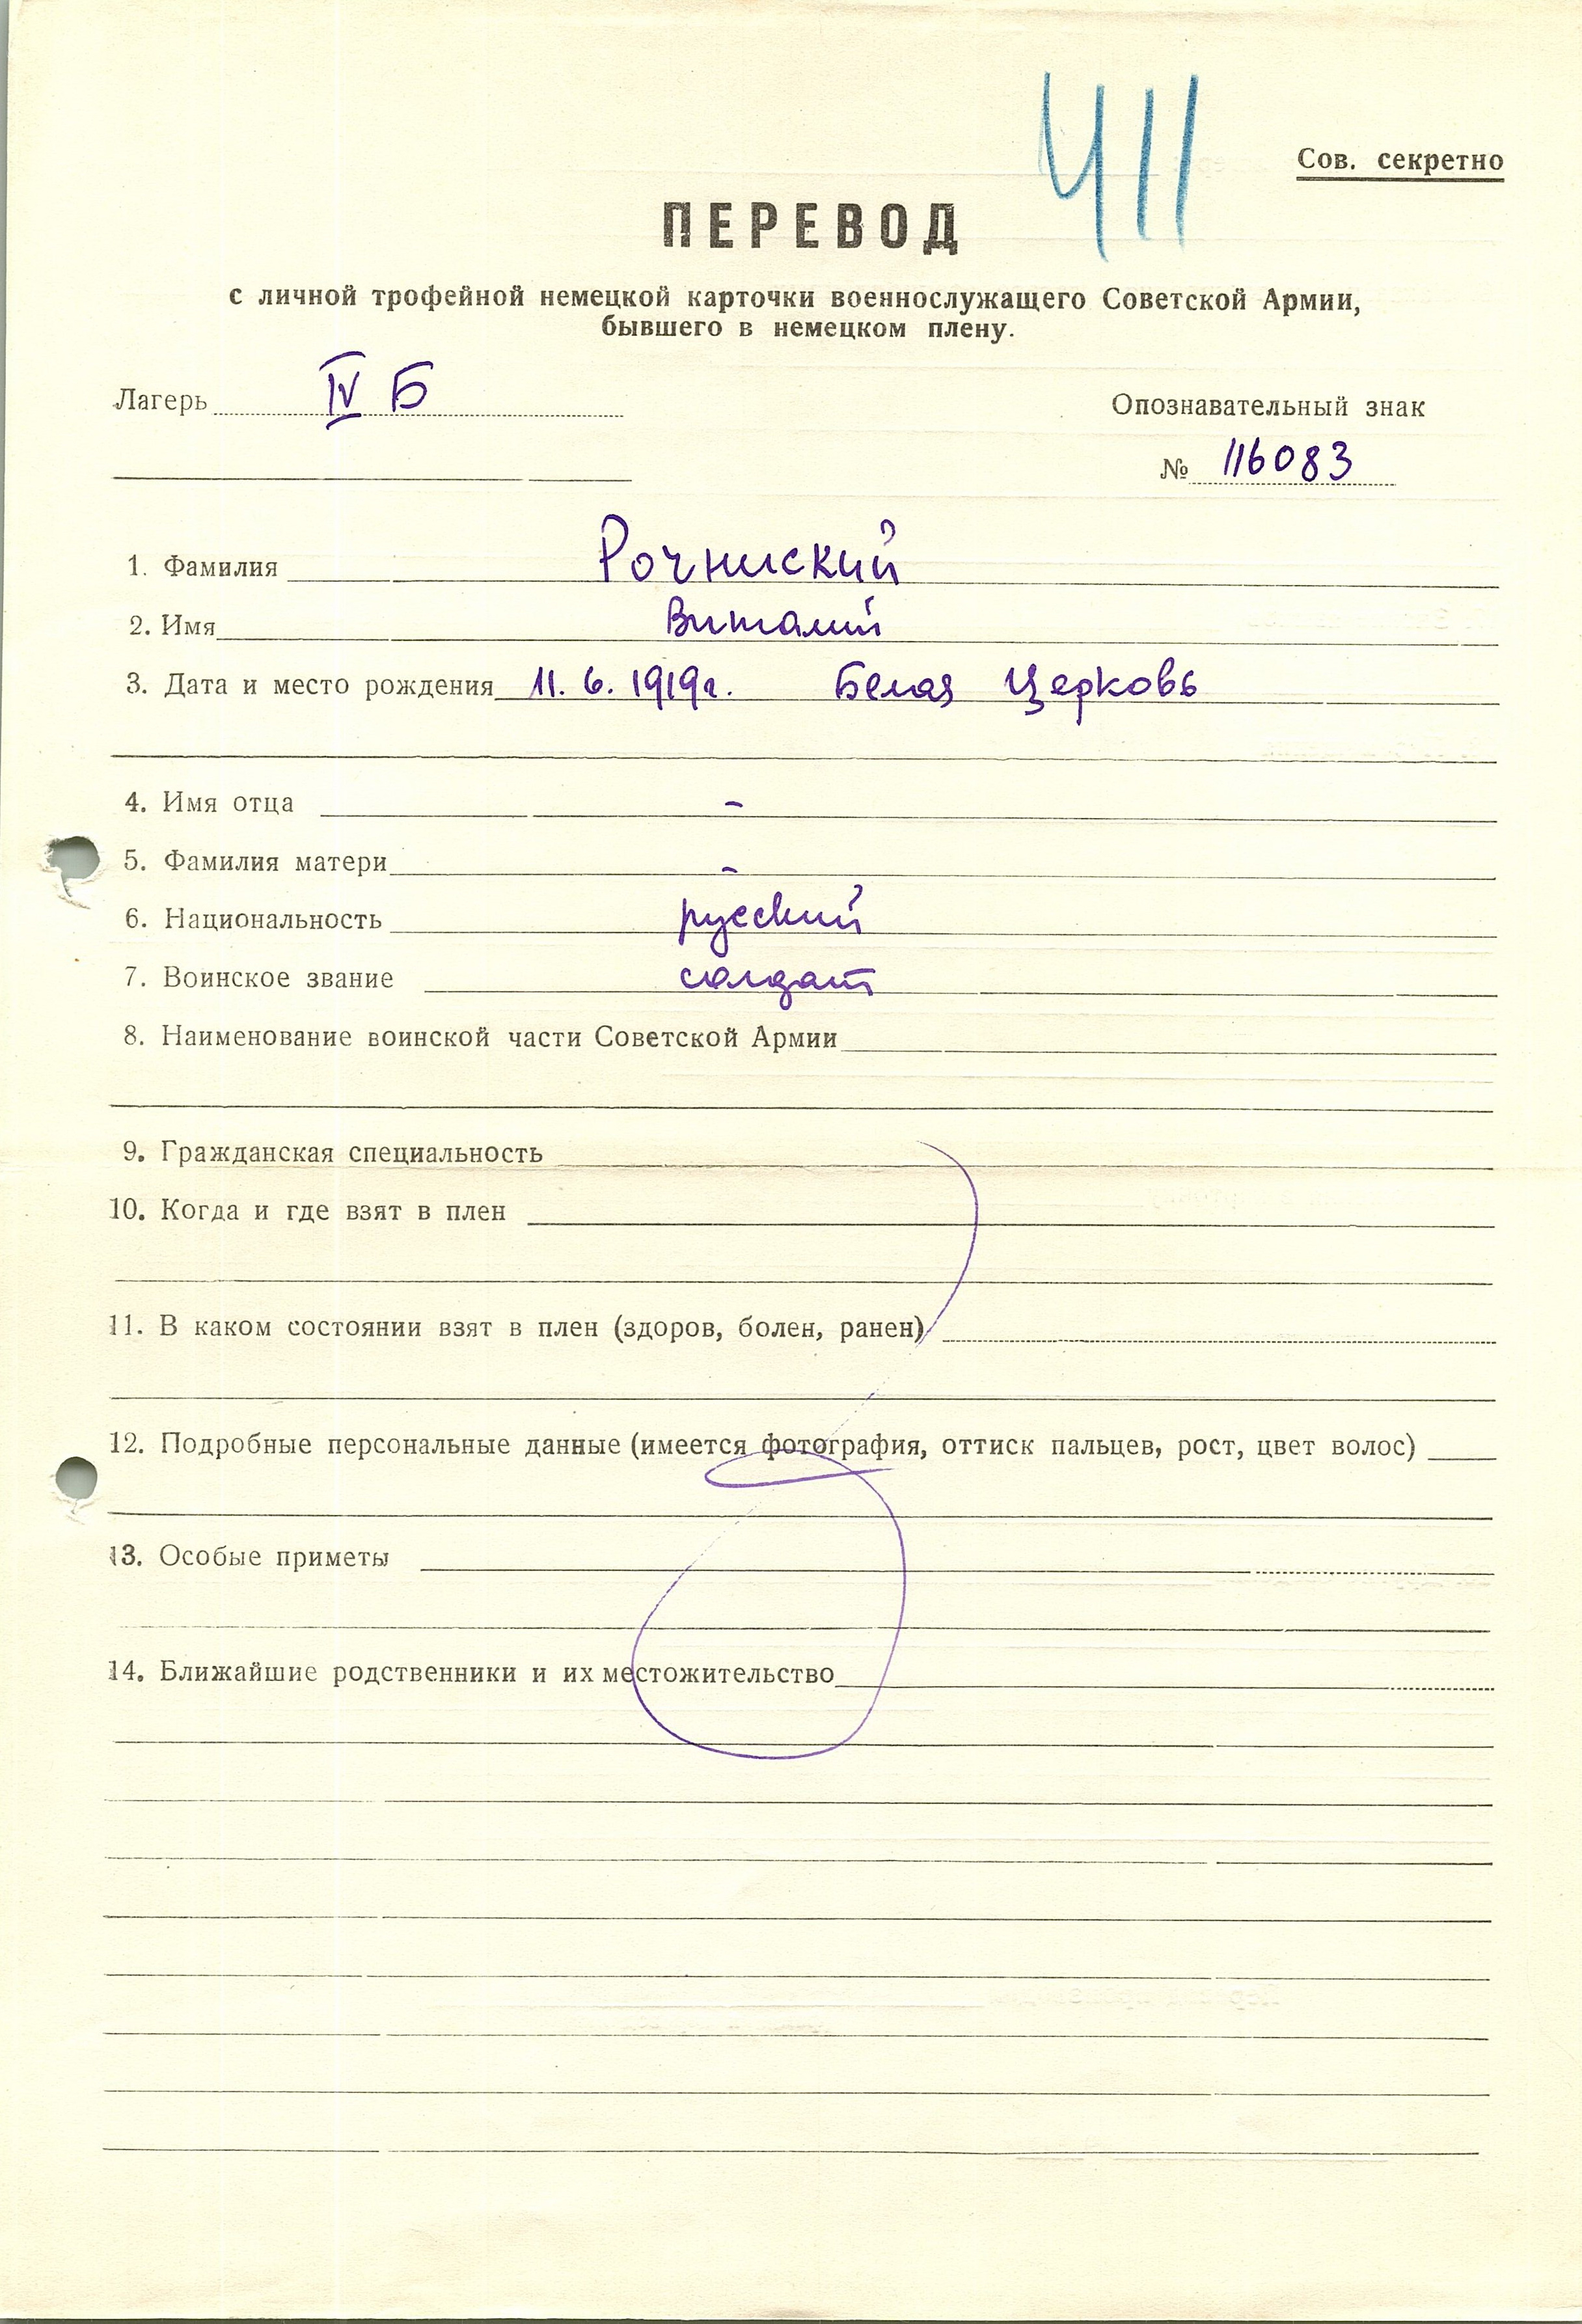 411
Сов. секретно
ПЕРЕВОД
с личной трофейной немецкой карточки военнослужащего Советской Армии,
бывшего в немецком плену.
Лагерь IV Б
Опознавательный знак
№ 116083
1. Фамилия Рочниский
2. Имя Виталий
3. Дата и место рождения 11. 6. 1919г. Белая Церковь
4. Имя отца -
5. Фамилия матери -
6. Национальность русский
7. Воинское звание солдат
8. Наименование воинской части Советской Армии
9. Гражданская специальность
10. Когда и где взят в плен
11. В каком состоянии взят в плен (здоров, болен, ранен)
12. Подробные персональные данные (имеется фотография, оттиск пальцев, рост, цвет волос)
13. Особые приметы
14. Ближайшие родственники и их местожительство